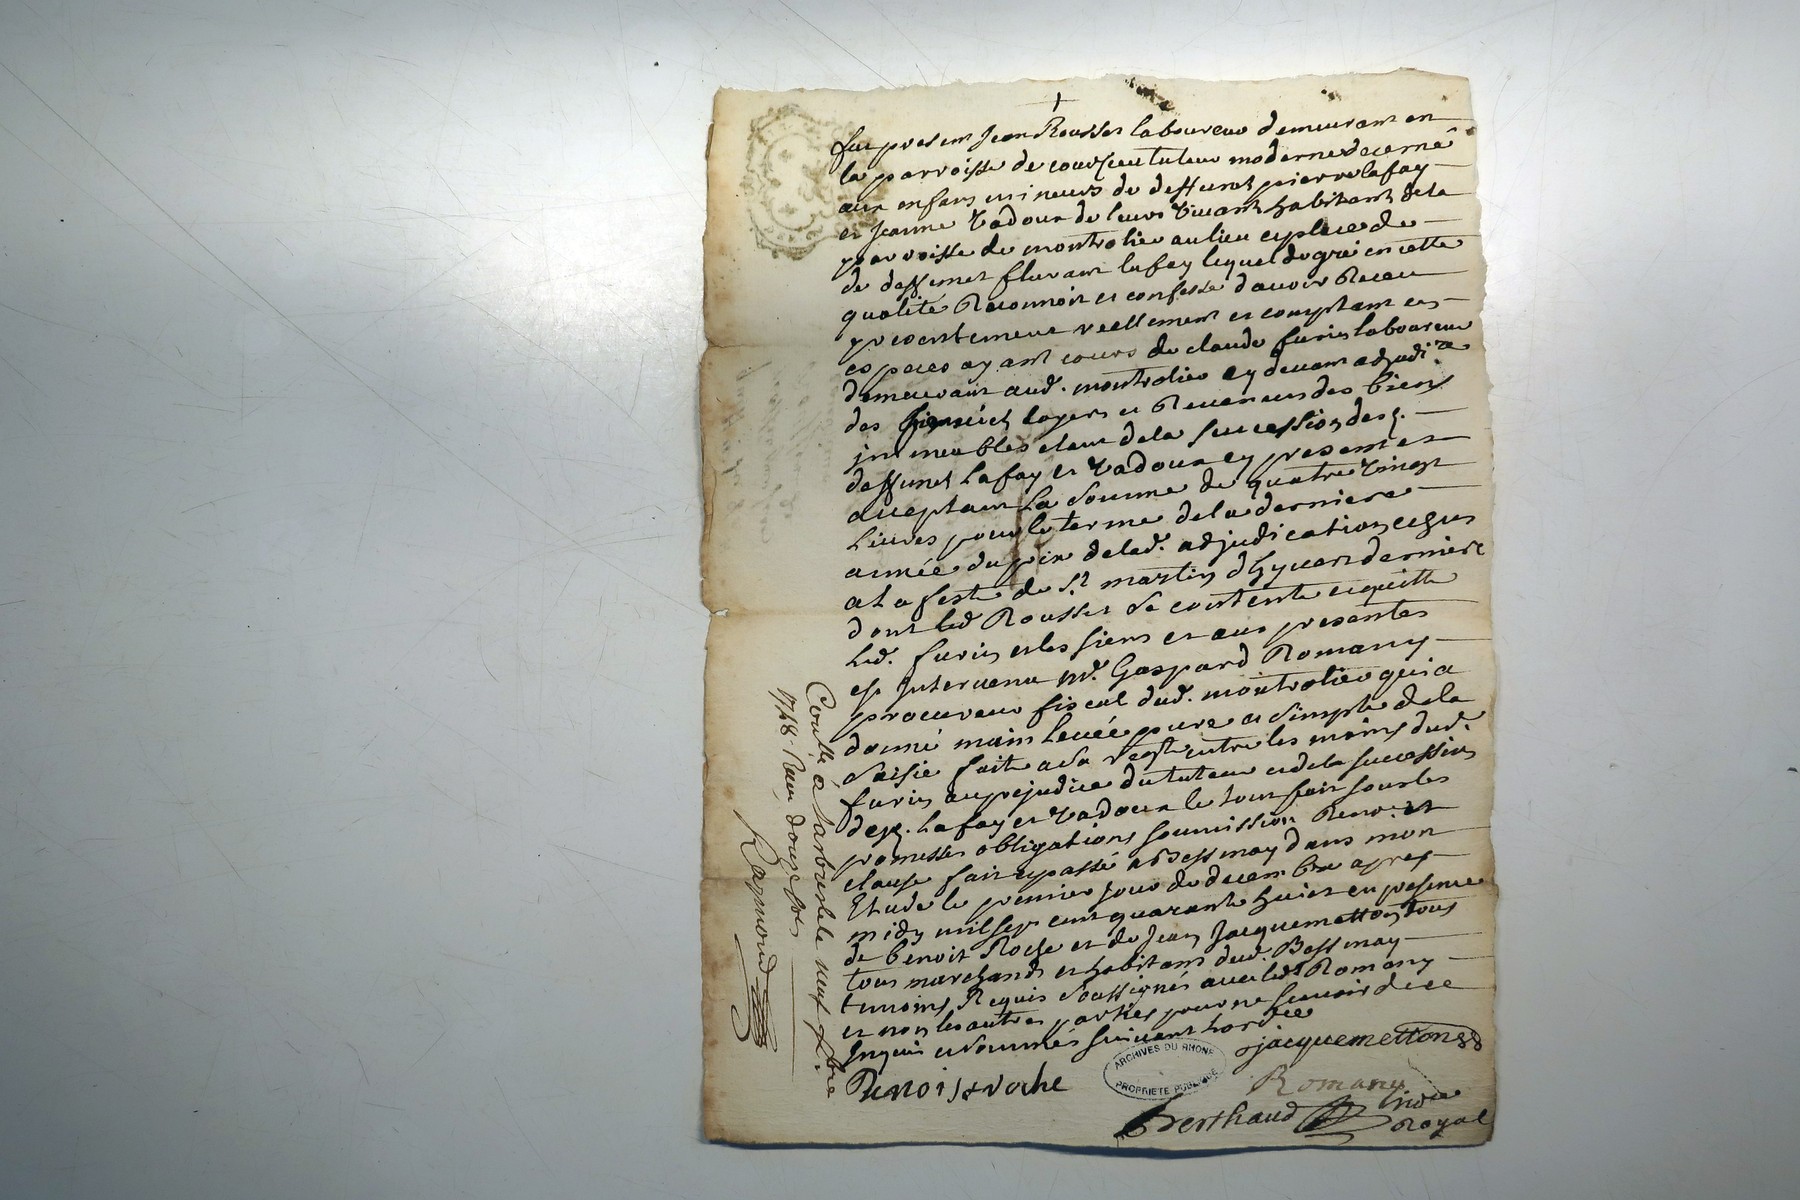 fut present Jean Rousset laboureur demeurant en
la parroisse de courzieu tuteur moderne decerné
aux enfans mineurs de deffunct pierre lafay
et Jeanne Vadoux de leurs vivant habitant de la
parroisse de montrotier au lieu et place de
de deffunct fleurant lafay lequel de gré en cette
qualité Reconnoit et confesse d'avoir Receu
presentement reellement et comptant en
especes ayant cours de claude furin laboureur
demeurant aud. montrotier cy devant adjudi.re
des loyers et Revenus des biens
immeubles etant de la succession desd.
deffunct Lafay et Vadoux cy present et
acceptant La somme de quatre vingt
Livres pour le terme de la derniere
année du prix de lad. adjudication echus
a La feste de St martin d'hyvert derniere
dont led Rousset se contente et quitte
Led. furin et les siens et aux presentes
est Intervenu Mr. Gaspard Romany
procureur fiscal dud. montrotier qui a
donné main Levée pure et simple de la
saisie faite a sa reqte entre les mains dud.
furin au prejudice du tuteur et de la succession
desd. Lafay et Vadoux le tout fait sous les
promesses obligations soumission Renon. et
clause fait et passé a Bessenay dans mon
Etude le premier jour de decembre apres
midy mil sept cent quarante huict en presence
de benoit Roche et de Jean Jacquemetton tous
tous marchands et habitans dud. Bessenay
temoins Requis soussignés avec led. Romany
et non les autres parties pour ne scavoir de ce
Enquis et sommés suivant l'ordce
jacquemetton
Benoist roche
Romany
Berthaud nore
Royal
ARCHIVES DU RHONE
PROPRIETE PUBLIQUE
Contlé a Larbresle le neuf xbre
1748. Receu douze sols
Raymond